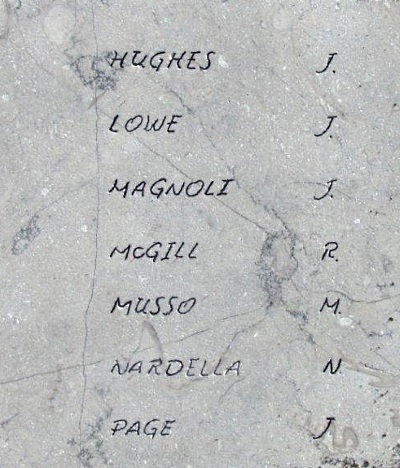 HUGHES J.
LOWE J.
MAGNOLI J.
McGILL R.
MUSSO M.
NARDELLA N.
PAGE J.